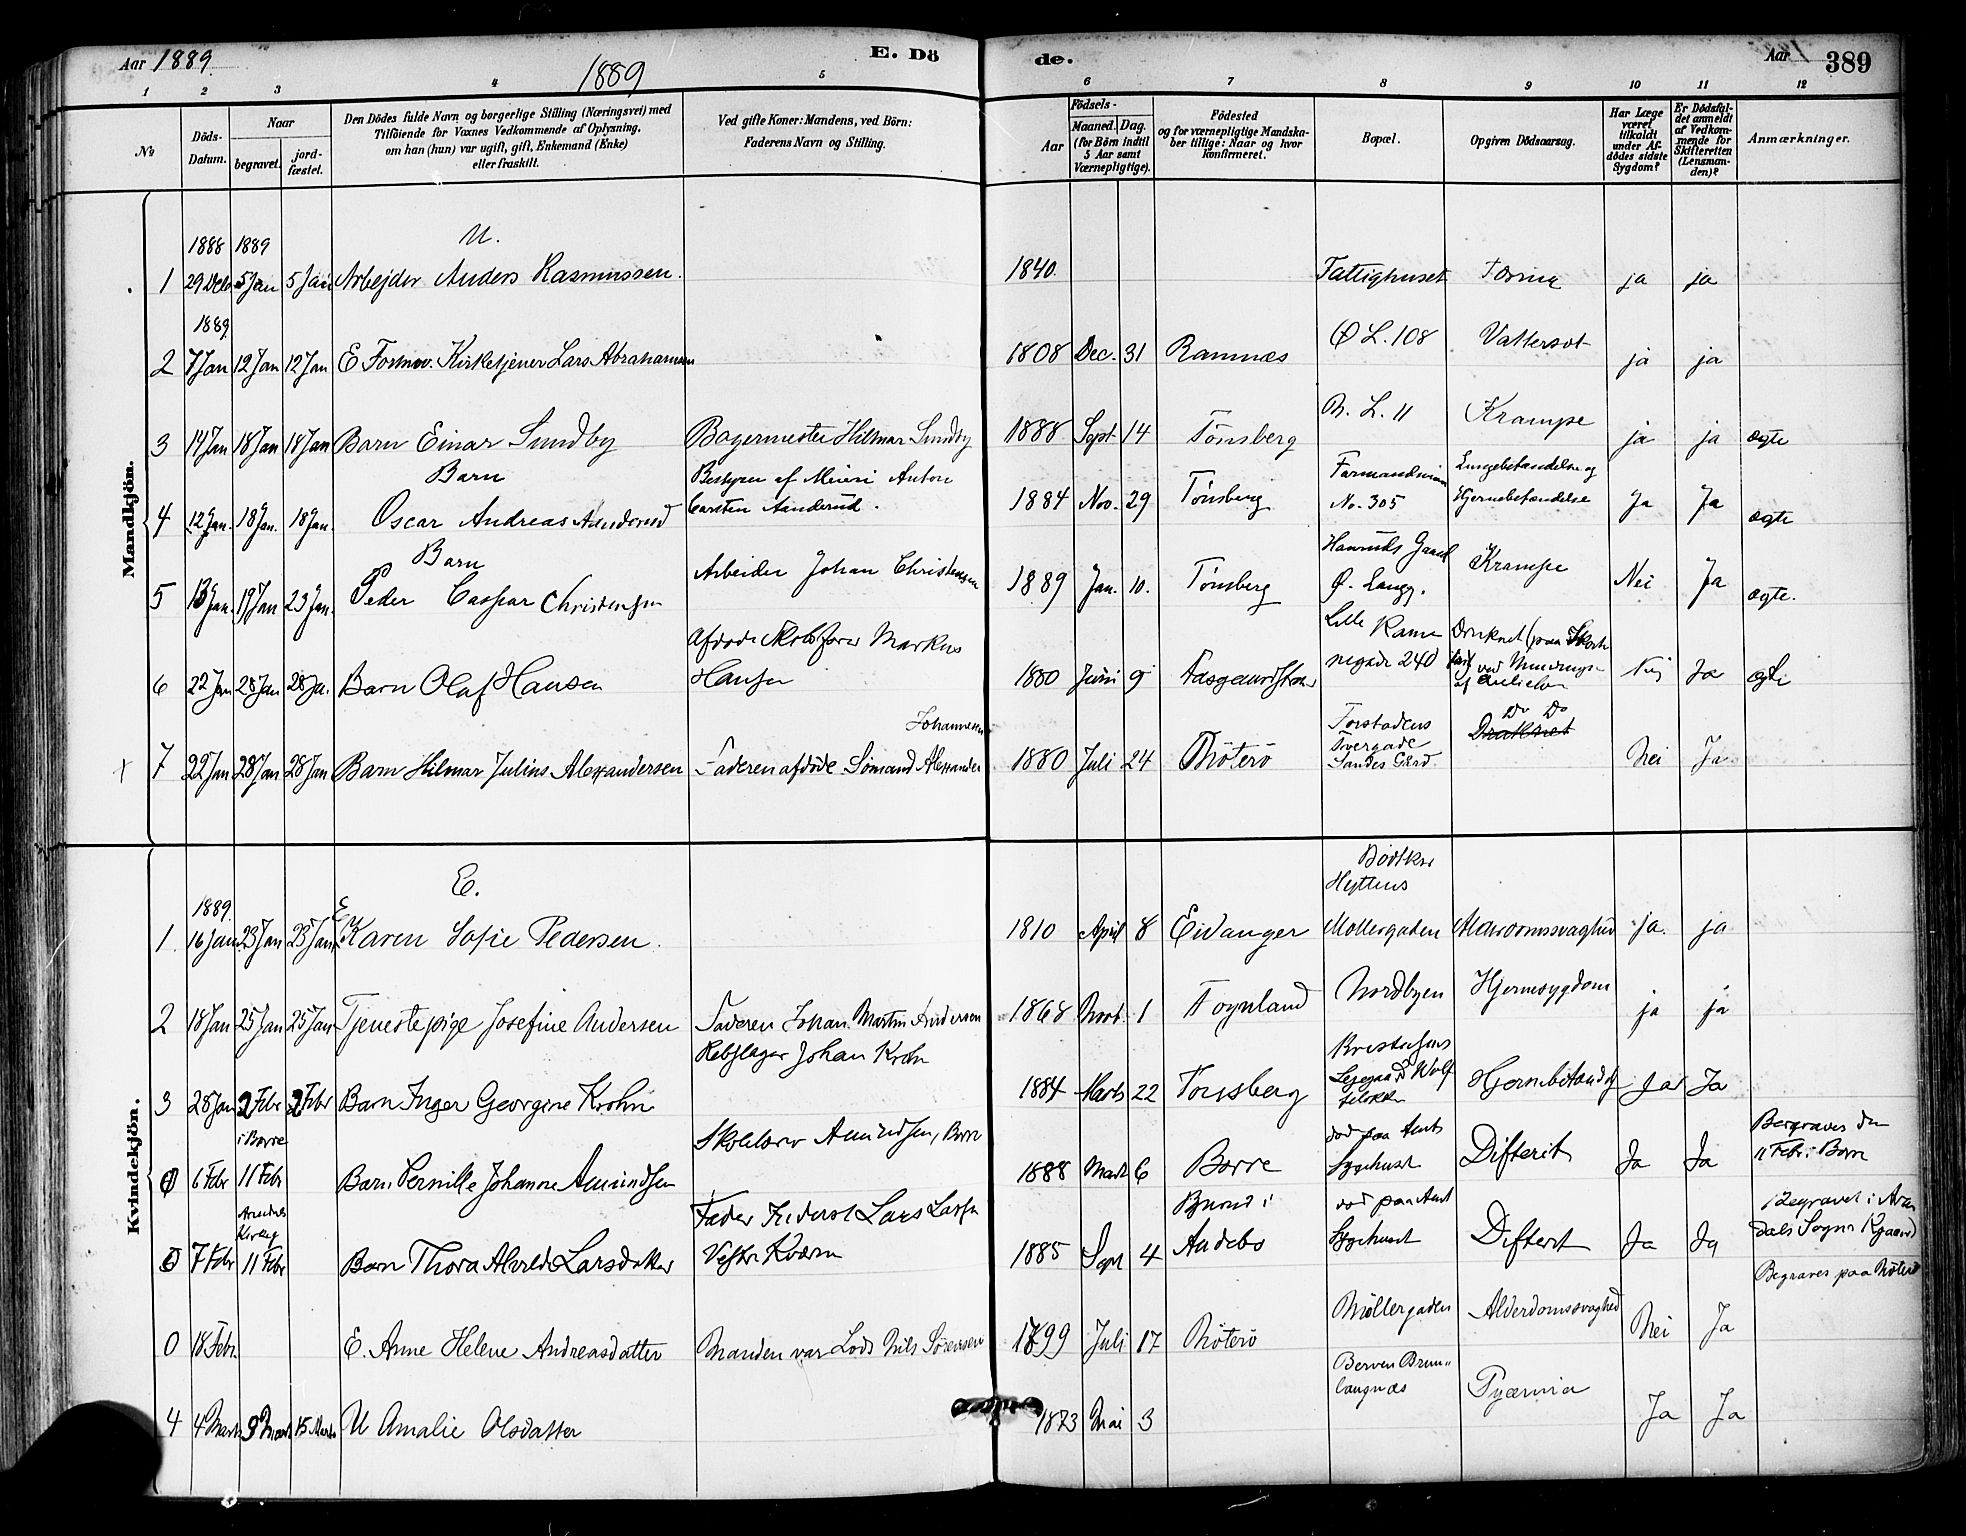 Aar 1889. E. Dö de. Aar 389
1889
1 2 3 4 5 6 7 8 9 10 11 12
No
Döds-Datum.
Naar
begravet.
jord-fæstet.
Den Dödes fulde Navn og borgerlige Stilling (Næringsvei) med
Tilföiende for Voxnes Vedkommende af Oplysning,
om han (hun) var ugift, gift, Enkemand (Enke)
eller fraskilt.
Ved gifte Koner: Mandens, ved Börn:
Faderens Navn og Stilling.
Födsels-
Aar
Maaned. Dag.
(for Börn indtil
5 Aar samt
Værnepligtige).
Födested
og for værnepligtige Mandska-
ber tillige: Naar og hvor
konfirmeret.
Bopæl.
Opgiven Dödsaarsag.
Har Læge
været
tilkaldt
under Af-
dödes sidste
Sygdom?
Er Dödsfal-
det anmeldt
af Vedkom-
mende for
Skifteretten
(Lensman-
den)?
Anmærkninger.
Mandkjön.
1888 1889 U.
1 29 Dcb 5 Jan 5 Jan Arbejder Anders Rasmussen. 1840. Fattighuset ja ja
1889.
2 7 Jan 12 Jan 12 Jan E Kirketjener Lars Abrahamsen 1808 Dec. 31 Ramnæs Ø L. 108 Vattersot ja ja
3 14 Jan 18 Jan 18 Jan Barn Einar Sundby Bagermester Hilmar Sundby 1888 Sept 14 Tønsberg N. L. 11 Krampe ja ja ægte
Barn Bestyrer af Meieri Anton Lungebetændelse og
4 12 Jan. 18 Jan. 18 Jan. Oscar Andreas Aanderud Carsten Aanderud. 1884 Nov. 29 Tønsberg No. 305 Hjernebetændelse Ja Ja ægte
Barn Gaard
5 13 Jan. 19 Jan 23 Jan. Peder Caspar Christensen Arbeider Johan Christensen 1889 Jan. 10. Tønsberg Ø. Langg. Krampe Nei Ja ægte.
Afdøde Markus Lille
6 22 Jan 28 Jan 28 Ja. Barn Olaf Hansen Hansen 1880 Juni 9 240 Nej Ja ægte
Johannesen Do Do
7 22 Jan 28 Jan 28 Jan Barn Hilmar Julius Alexandersen Faderen afdøde Sømand Alexander 1880 Juli 24 Nøterø Torstadens Tvergade Sandes Gård. Druknet Nei Ja
Kvindekjön.
1889. E.
Bødtker
Hyttens
1. 16 Jan 23 Jan 23 Jan E Karen Sofie Pedersen. 1810 April 8 Eidanger Møllergaden ja. ja
2 18 Jan 25 Jan 25 Jan Tjenestepige Josefine Andersen Faderen Johan Martin Anderson 1868 Novb. 1 Føynland Nordbyen Hjernesygdom ja ja
Rebslager Johan Krohn
3 28 Jan 2 Febr 2 Febr Barn Inger Georgine Krohn 1884 Marts 22 Tønsberg Ja Ja
i Borre død paa Amts Begraves den
6 Febr 11 Febr Barn Pernille Johanne Amundsen Skolelærer Amundsen, Borre 1888 Marts 6 Borre Sygehuset Difterit Ja Ja 11 Febr i Borre
død paa Amt Begravet i
7 Febr 11 Febr Barn Thora Alvilde Larsdatter Fader Lars Larsen 1885 Sept 4 Andebo Sygehuset Difterit Ja Ja dals Sogns Kgaard
Begraves paa Nøterø
0 18 Febr. E. Anne Helene Andreasdatter Manden var Lods Nils Sørensen 1799 Juli 17 Nøterø Møllergaden Alderdomssvaghed Nei Ja
4 4 Marts 9 Marts 15 Marts U Amalie Olsdatter 1873 Mai 3 Berven Brun-
langnæs Pyæmia Ja Ja